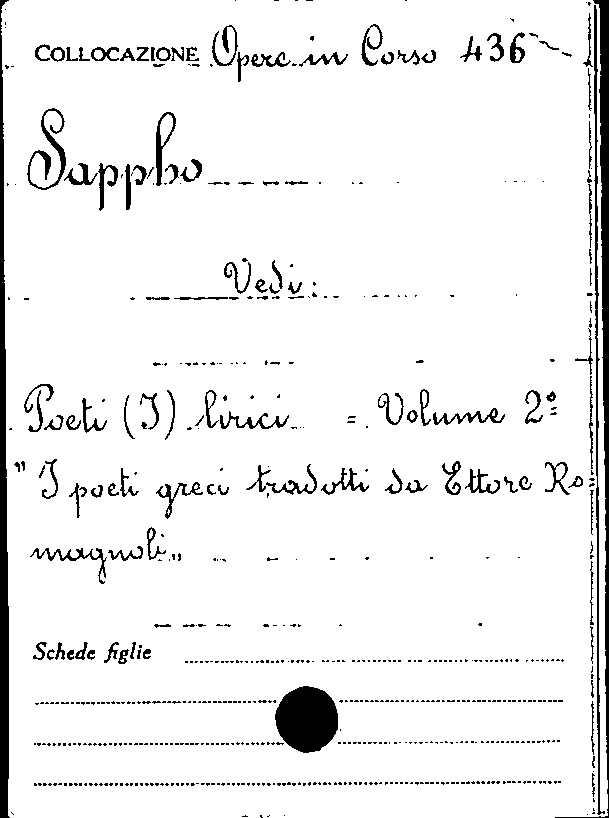 COLLOCAZIONE Opere in Corso 436
Sappho
Vedi:
Poeti (I) lirici = Volume 2º
"I poeti greci tradotti da Ettore Ro=
magnoli"
Schede figlie